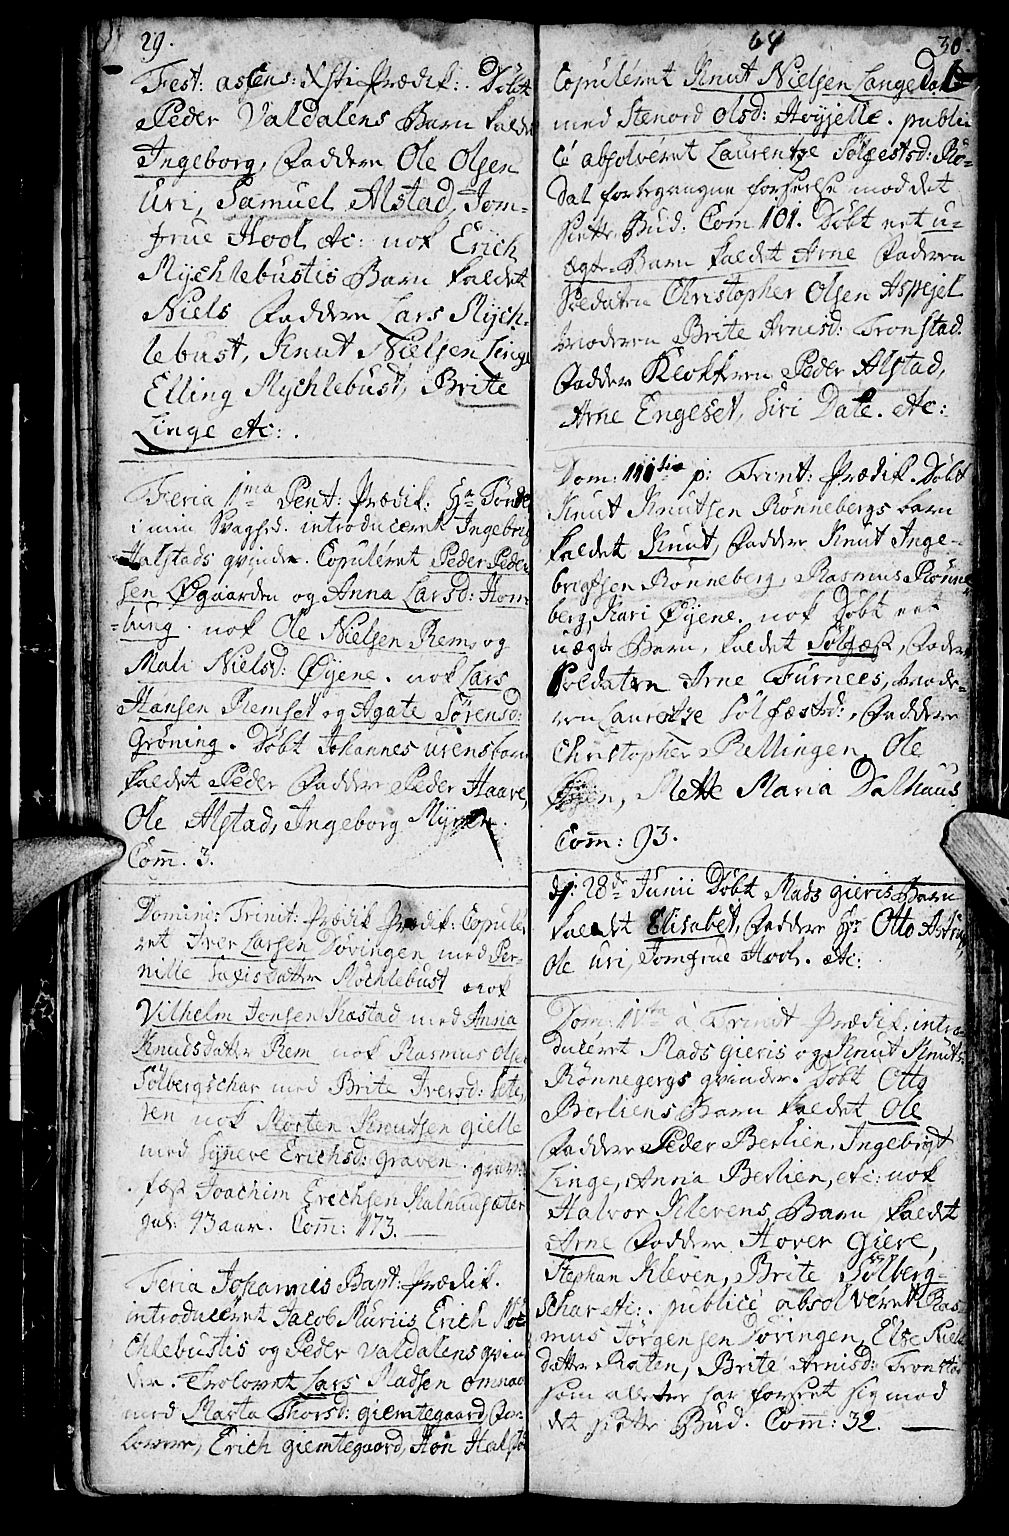 29.
Fest: ascens: Xsti Prædik: Døbt
Peder Valdalens Barn kaldet
Ingeborg, Faddere Ole Olsen
Uri, Samuel Alstad, Jom-
frue Hool, etc: nok Erich
Mychlebustis Barn kaldet
Niels Faddere Lars Mych-
lebust, Knut Nielsen Linge
Elling Mychlebust, Brite
Linge etc:.
Feria 1ma Pent: Prædik: Hr Tønder
i min Svaghed. introduceret Ingebrigt
Halstads qvinde. Copuleret Peder Peder
sen Øgaarden og Anna Larsd: Hom-
bung. nok Ole Nielsen Rem, og
Mali Nielsd: Øyene. nok Lars
Hansen Remset og Agate Sørensd:
Grøning. Døbt Johannes Urens barn
kaldet Peder Faddere Peder Haare,
Ole Alstad, Ingeborg Myren.
Com̅. 3.
Domini: Trinit: Prædik: Copule
ret Iver Larsen Døvingen med Per-
nille Saxisdatter Mochlebust nok
Vilhelm Jonsen Kastad med Anna
Knudsdatter Rem nok Rasmus Olsen
Sølbergschar med Brite Iversd: Sæte-
ren nok Morten Knudtsen Gielle
med Synneve Erichsd: Graven.
fæst Joachim Erechsen Kalhusæter
gul: 43 aar. Com̅: 173.
Feria Johannis Bapt: Prædik.
introduceret Jacob Muriis Erich Mø
chlebustis og Peder Valdalens qvin
der. Trolovet Lars Madsen Omnaas
med Marta Thorsd: Giemtegaard, For-
lovere, Erich Giemtegaard, Jon Halstad
64
30.
Copuleret Knut Nielsen Lange
med Stenord Olsd: Høyjelle. publi
cè absolveret Laurentze Sølfestsd: Rø-
dal for begangne forseelse mod det
siette Bud. Com 101. Døbt eet u-
ægte Barn kaldet Arne Faderen
Soldaten Christopher Olsen Aspejel
Moderen Brite Arnisd: Tronstad.
Faddere Klokkeren Peder Alstad,
Arne Engeset, Siri Dale. etc:
Dom: IIItia p: Trinit: Prædik. Døbt
Knut Knutsen Rønnebergs barn
kaldet Knut, Faddere Knut Inge-
brigtsen Rønneberg, Rasmus Rønne
berg, Kari Øyene. nok Døbt eet
uægte Barn, kaldet Sølfæst, Faderen
Soldaten Arne Furnees, Mode-
ren Lauretze Sølfæstsd:, Faddere
Christopher Rellingen, Ole
Mette Maria Dalhuus.
Com̅: 93.
d: 28de Junii Døbt Mads Gieris Barn
kaldet Elisabet, Faddere Hr Otto Astrup,
Ole Uri, Jomfrue Hool. etc:
Dom: IVta à Trinit Prædik: intro-
duceret Mads Gieris og Knut Knuts:
Rønnegergs qvinder. Døbt Otto
Berliens Barn kaldet Ole
Faddere Peder Berlien, Ingebrigt
Linge, Anna Berlien, etc: nok
Halvor Klevens Barn kaldet
Arne Faddere Hover Giere,
Stephan Kleven, Brite Sølberg-
schar etc:. publicè absolveret Ras
mus Jørgensen Døvingen, Else Niels
datter Raten, Brite Arnisd: Tronstad
som alle tre har forseet sig mod
det siette Bud. Com̅: 32.